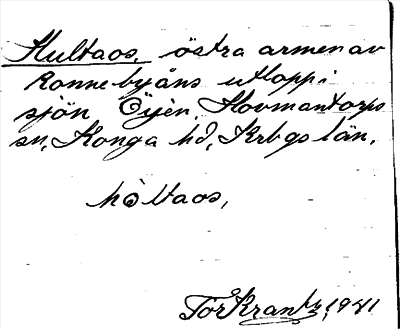 Hultaos, östra armen av
Ronnebyåns utlopp i
sjön Öyen, Hovmantorps
sn, Konga hd, Krbgs län.
hòltaos,
Tor Krantz, 1941